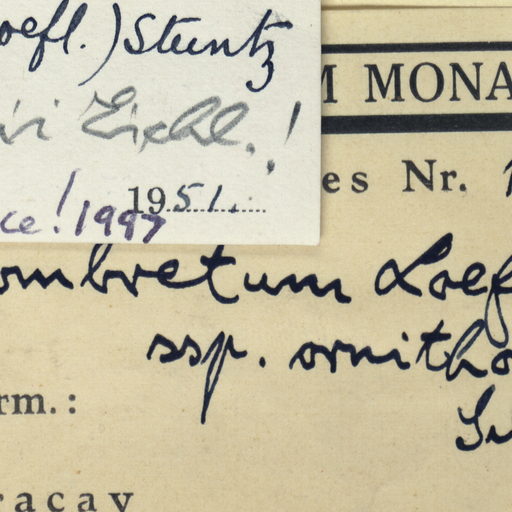 oefl.) Stuntz
Eichl.!
M MONA
es Nr. 1
1951.
ce! 1997
ombretum Loef
ssp. ornitho
rm.:
racay